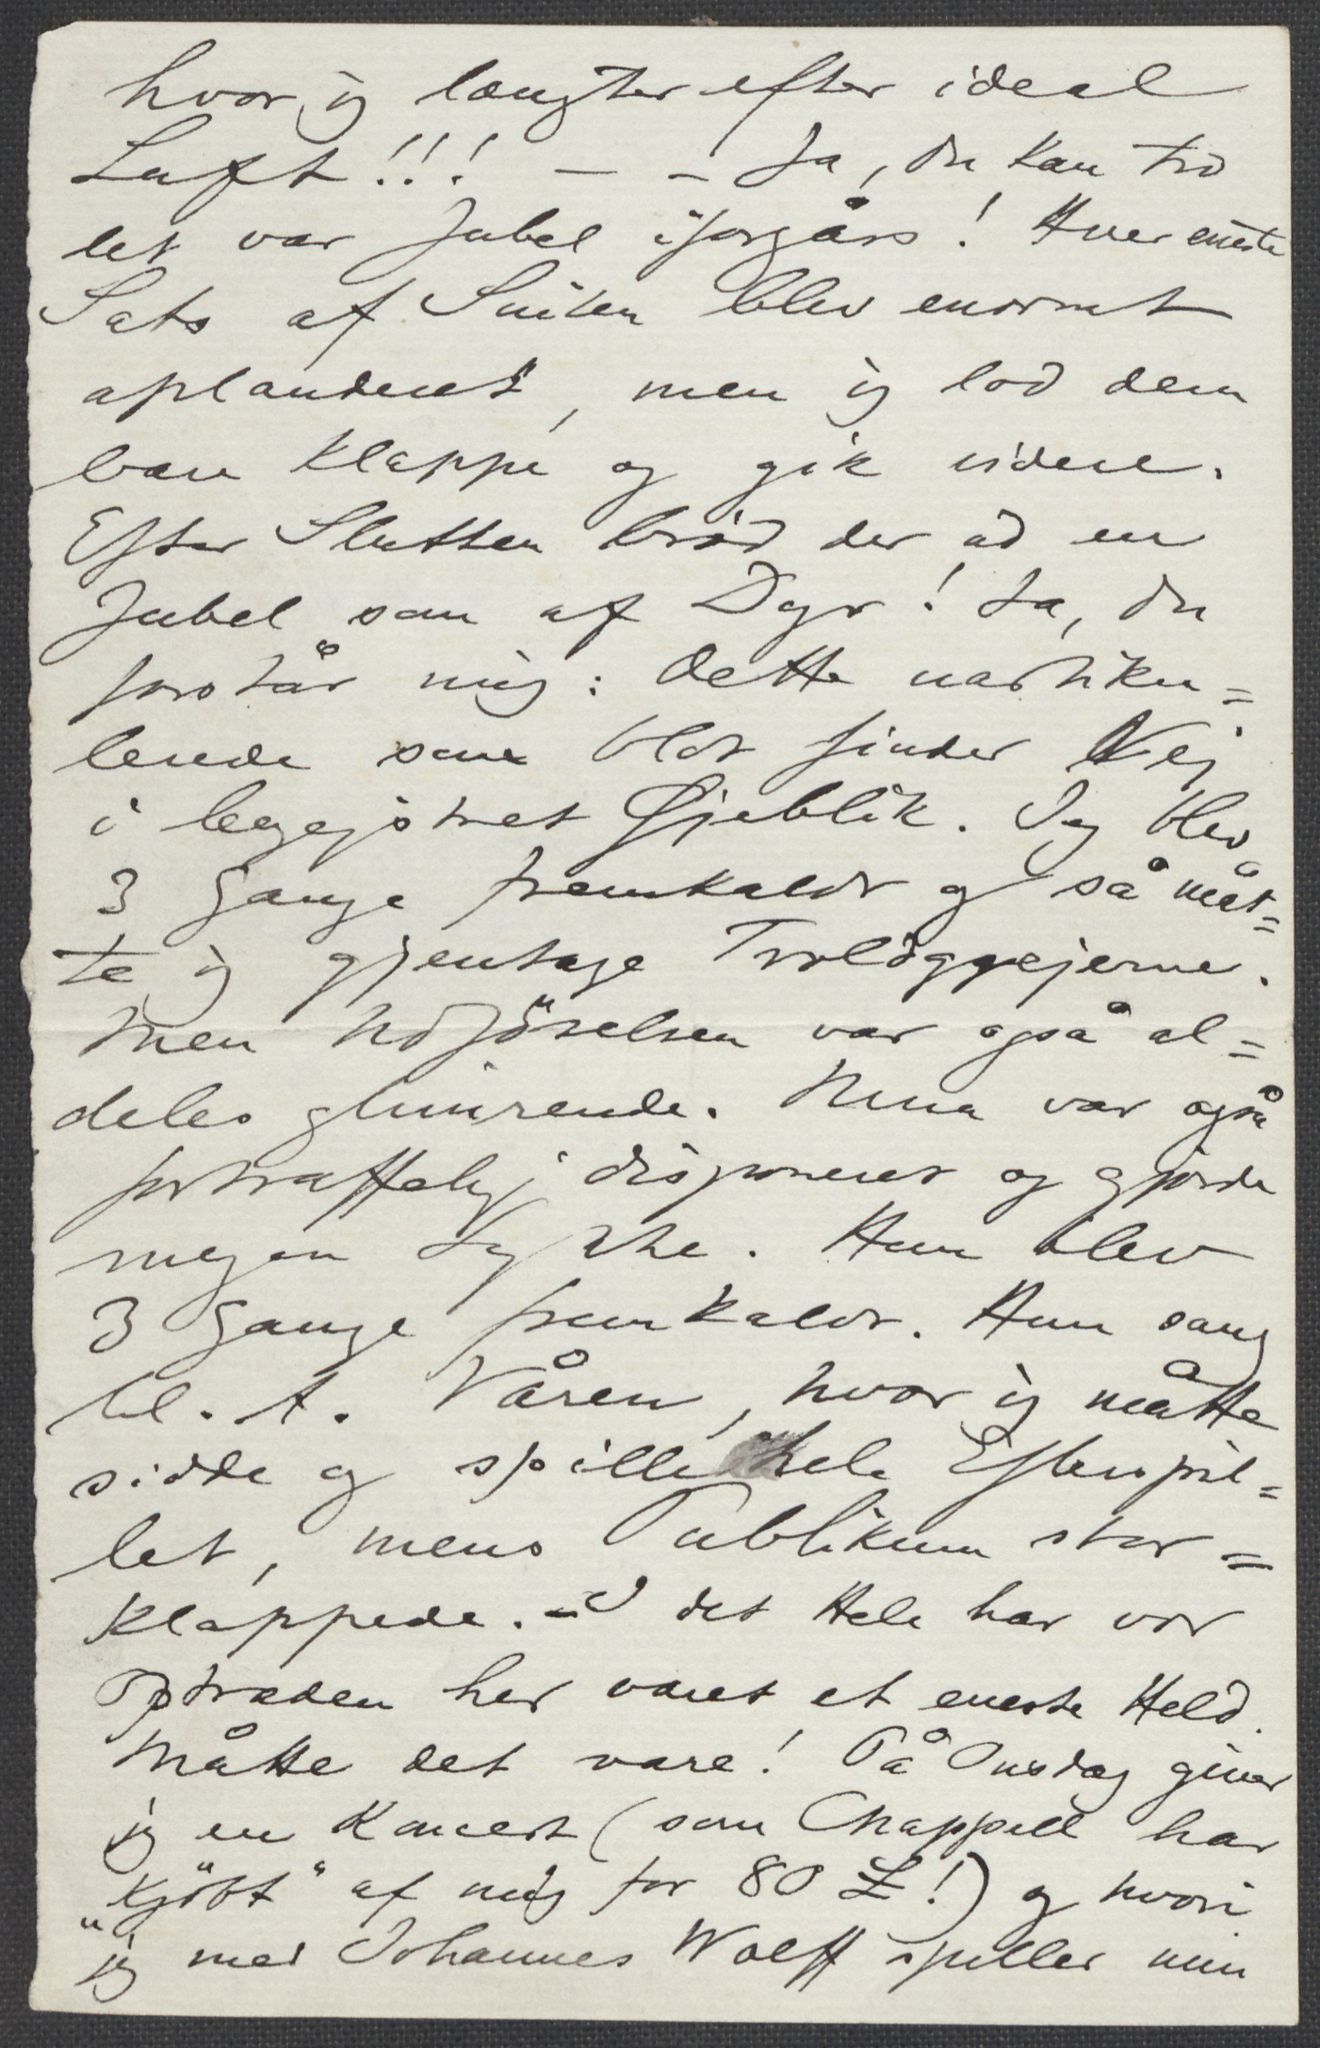 hvor jeg længter efter ideal
Luft!!! — – Ja, du kan tro
det var Jubel iforgårs! Hver eneste
Sats af Suiten blev enormt
aplauderet, men jeg lod dem
bare klappe og gik videre.
Efter Slutten brød der ud en
Jubel som af Dyr! Ja, du
forstår mig: dette uartiku=
lerede som blot finder Vej
i begejstret Øjeblik. Jeg blev
3 Gange fremkaldt og så måt=
te jeg gjentage
Men Udførelsen var også al=
deles glimrende. Nina var også
fortræffelig disponeret og gjorde
megen Lykke. Hun blev
3 Gange fremkaldt. Hun sang
bl. A. Våren, hvor jeg måtte
sidde og spille hele Efterspil=
let, mens Publikum stor=
klappede. – I det Hele har vor
Optræden her været et eneste Held.
Måtte det vare! På Onsdag giver
jeg en Koncert (som Chappell har
„kjøbt" af mig for 80 £!) og hvori
jeg med Johannes Wolff spiller min